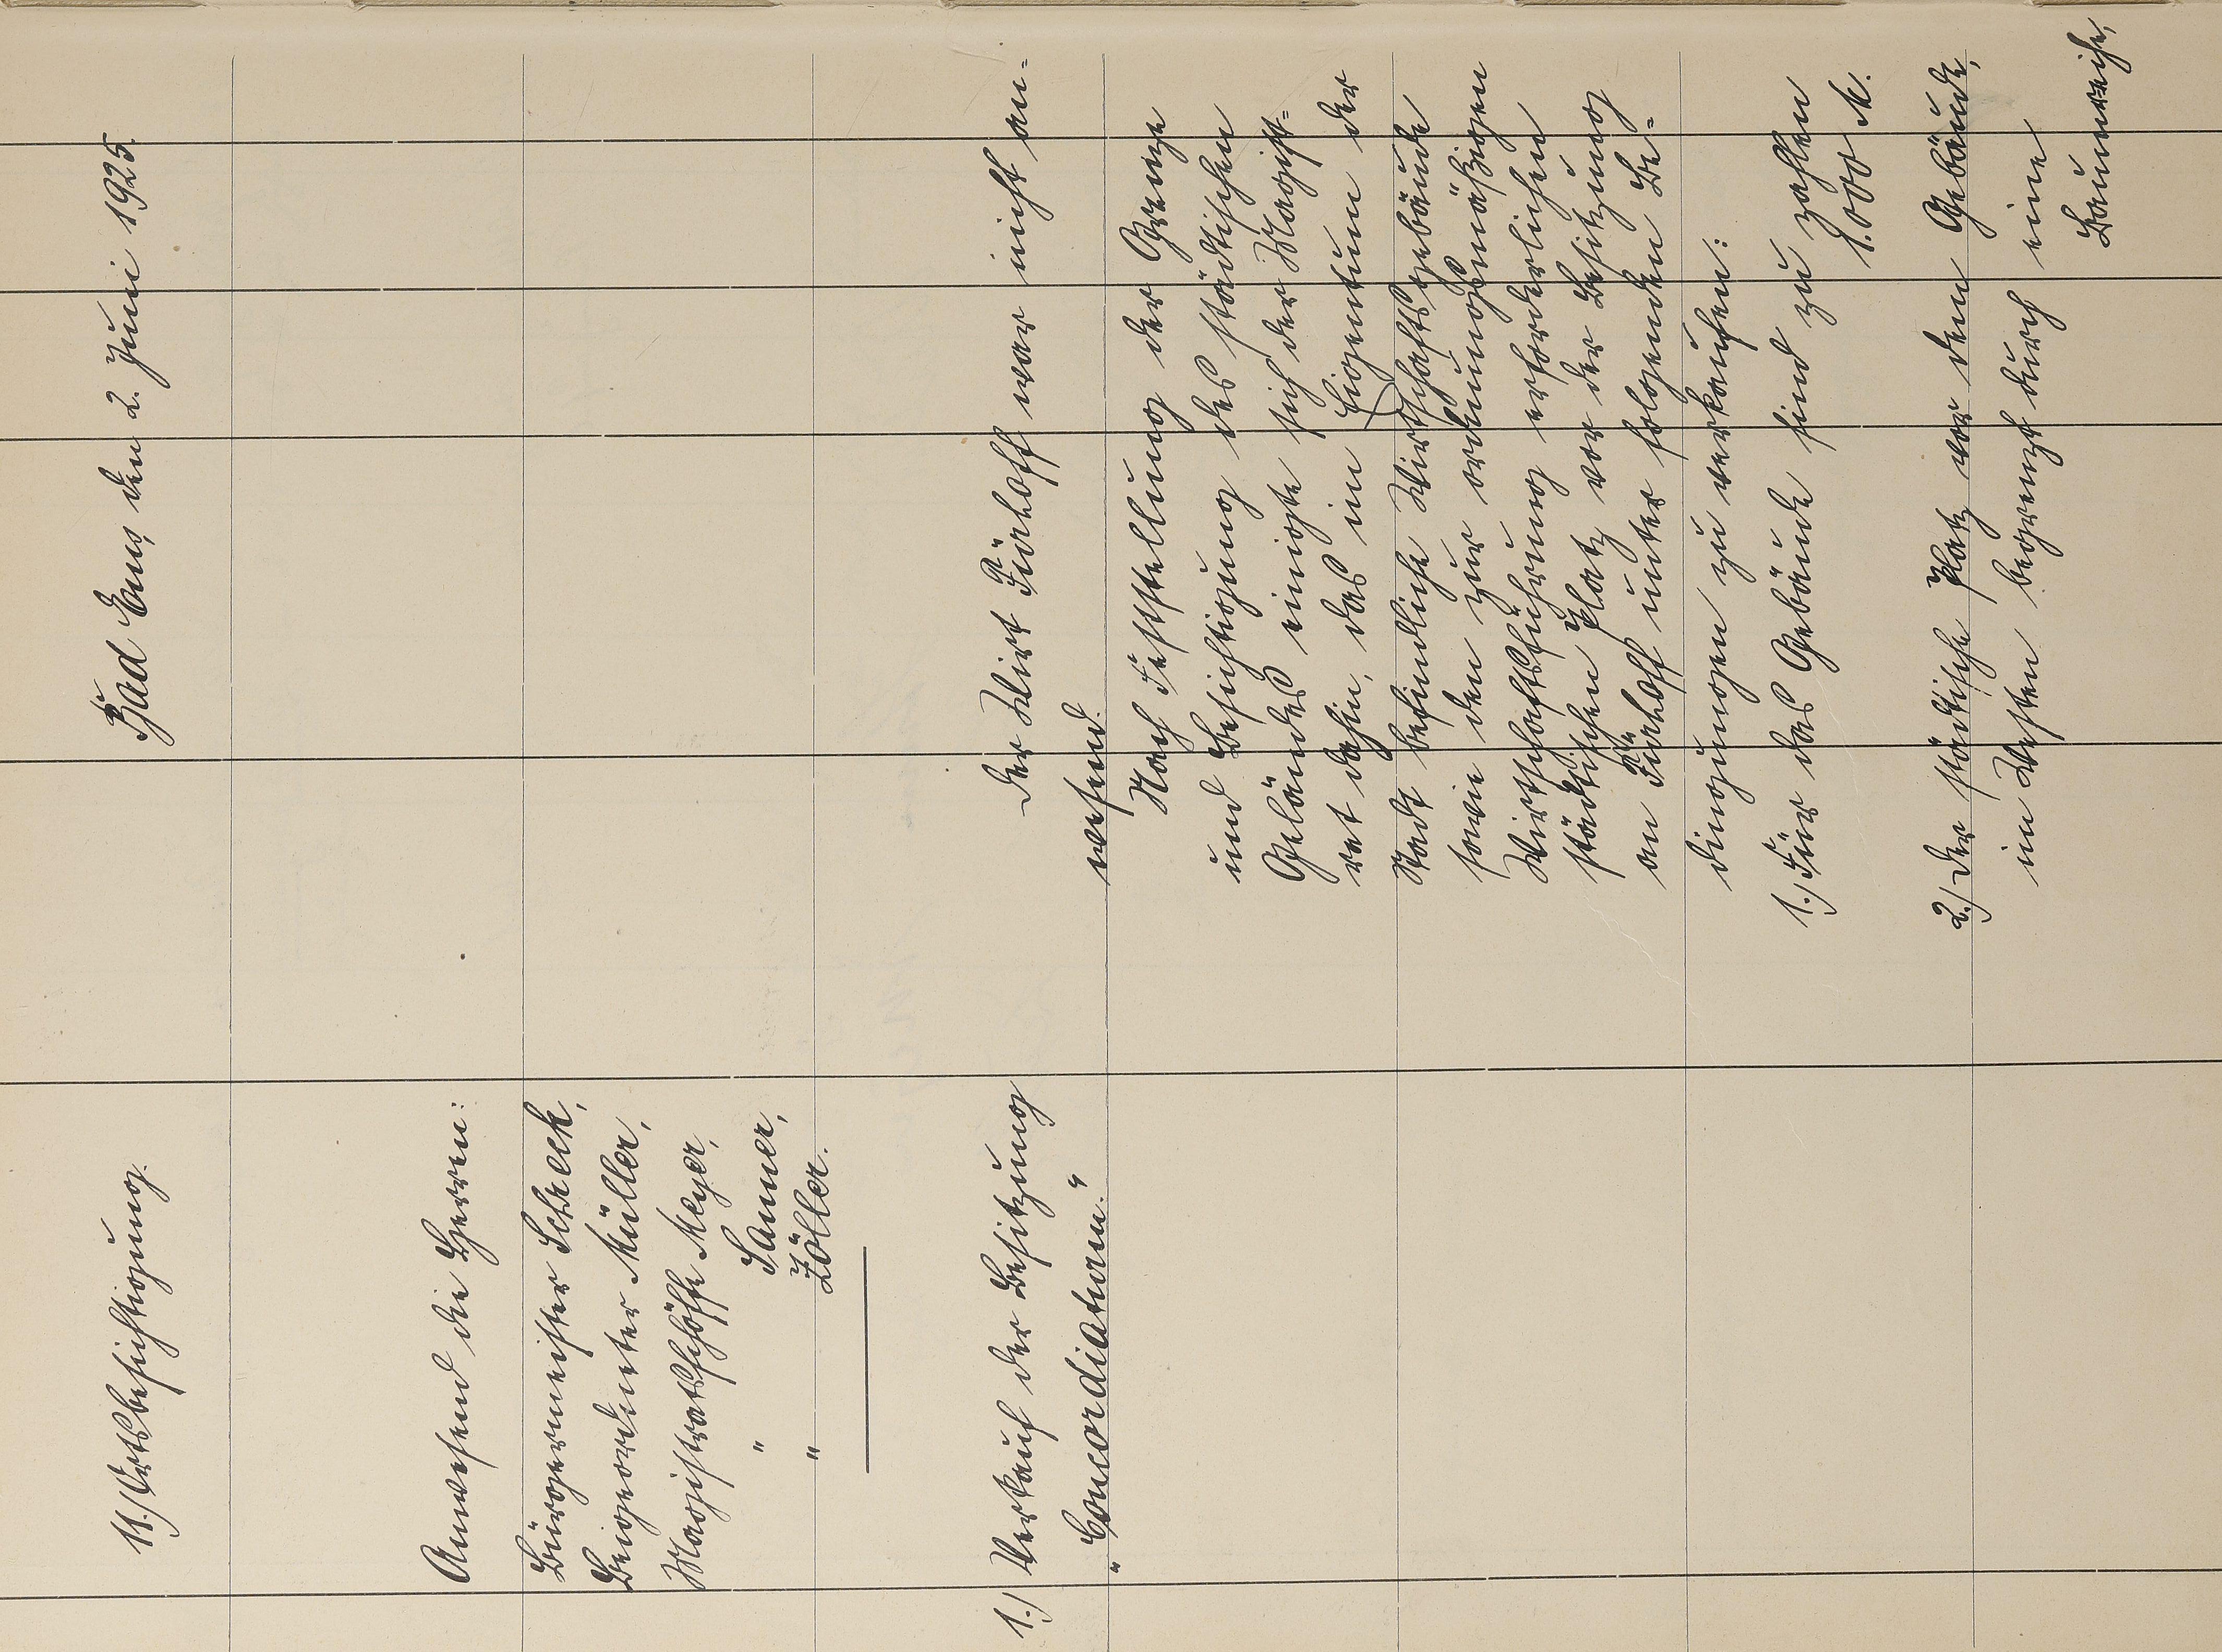 11.) Ortsbesichtigung.
Bad Ems, den 2. Juni 1925.
Anwesend die Herren:
Bürgermeister Schreck,
Beigeordneter Müller,
Magistratsschöffe Meyer,
" Sauer,
" Zöller.
1.) Verkauf der Besitzung
„Concordiaturm."
Der Wirt Fürhoff war nicht an-
wesend.
Nach Feststellung der Grenze
und Besichtigung des städtischen
Geländes einigte sich der Magist-
rat dahin, das im Eigentum der
Stadt befindliche Wirtschaftsgebäude
sowie den zur ordnungsmäßigen
Wirtschaftsführung erforderlichen
städtischen Platz vor der Besitzung
an Fürhoff unter folgenden Be-
dingungen zu verkaufen:
1.) Für das Gebäude sind zu zahlen
1.000 M.
2.) Der städtische Platz vor dem Gebäude,
im Westen begrenzt durch eine
Baumreihe,